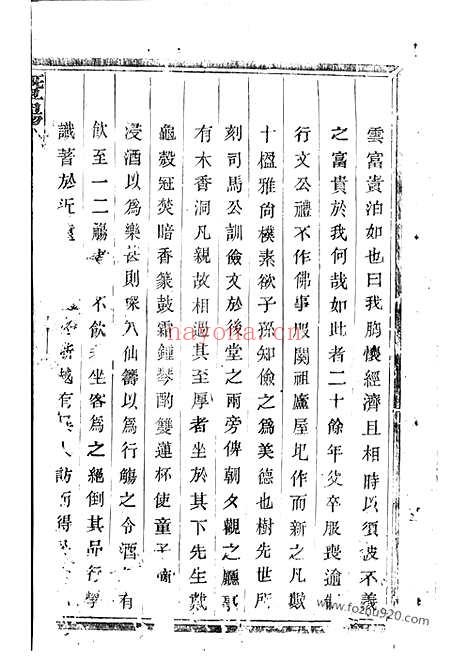 雲富貴泊如也曰我胸懷經濟且相時以須彼不義
之富貴於我何哉如此者二十餘年父卒服喪逾
行文公禮不作佛事服闋祖廬屋圮作而新之凡數
十楹雅尚樸素欲子孫知儉之為美德也樹先世所
刻司馬公訓儉文於後堂之兩旁俾朝夕觀之廳事
有木香洞凡親故相過其至厚者坐於其下先生戴
龜殼冠焚暗香篆鼓霜鍾琴酌雙蓮杯使童子
浸酒以為樂甚則彩八仙籌以為行觴之令酒 有
飲至一二觴者 不飲 坐客為之絕倒其品行學
識著於 有 人訪 得
nayona.cn
www.fozhu920.com